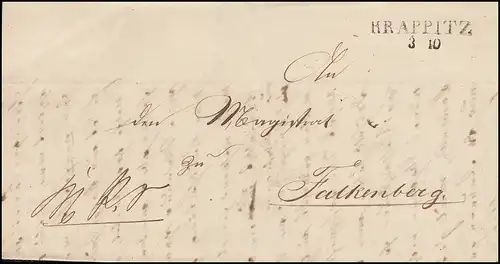 KRAPPITZ
3 10
An
den Magistrat
zu
Falkenberg.